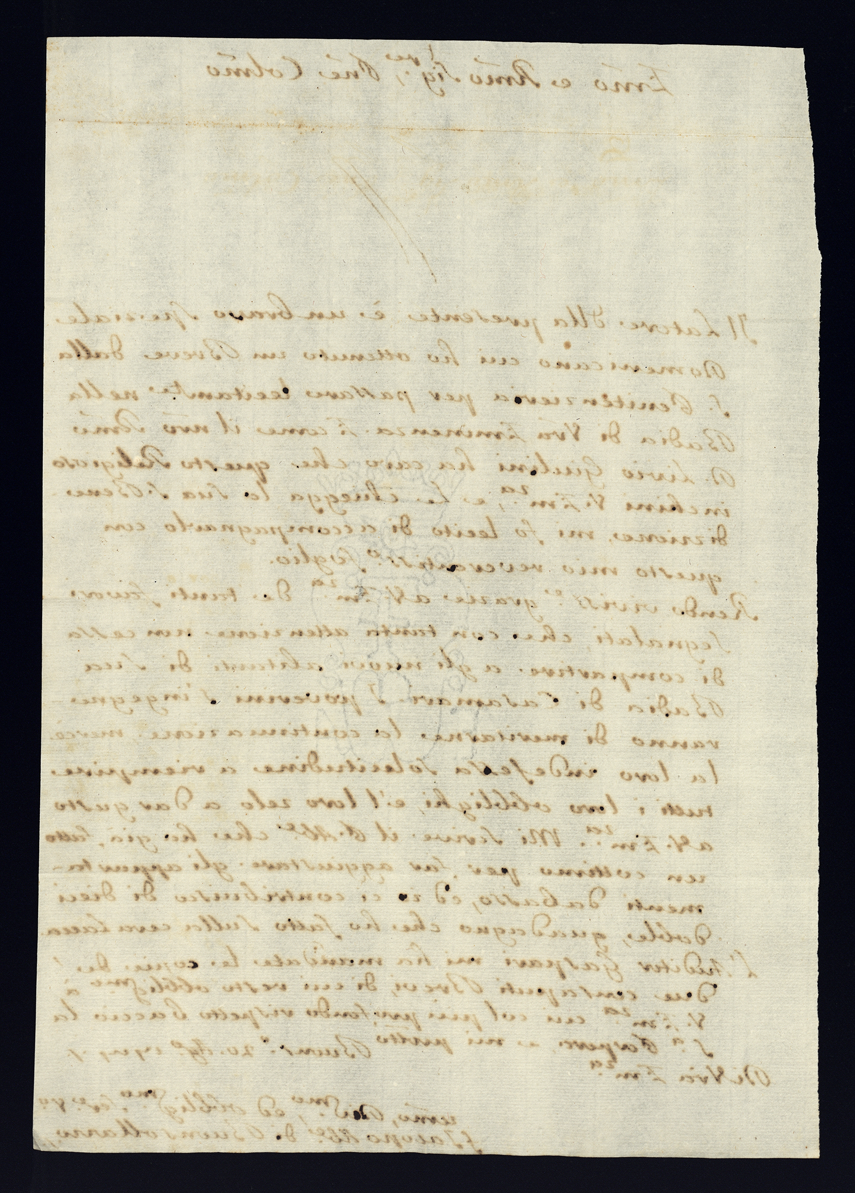 Emo e Rmo Sigre, Pne Colmo
Il Latore dlla presente è un bravo Speziale
Domenicano cui ho ottenuto un Breve dalla
S. Penitenzieria per passare lecitamte nella
Badia di Vra Eminenza. E come il nro
D. Livio Giulini ha caro che questo Religioso
inchini V. Emza, e Le chiegga la sua S. Bene-
dizione, mi fo lecito di accompagnarlo con
questo mio reverentisso foglio.
Rendo vivisse grazie a V. Emza de tanti favori
segnalati che con tanta attenzione non cessa
di compartire a gli nuovi di sua
Badia di Casamari. I poverini s'ingegne-
ranno di meritarne la continuazione mercè
la loro indefessa sollecitudine a riempire
tutti i loro obblighi, e 'l loro zelo a dar gusto
a V. Emza. Mi scrive il P. Abe che ha già fatto
un cottimo per far aggiustare gli apparta-
menti dabasso, ed io ci contribuisco di dieci
doble, guadagno che ho fatto sulla cera lacca.
L'Auditor Gaspari mi ha mandate le copie de'
due consaputi Brevi, di cui resto obbligmo à
V. Emza cui col più profondo rispetto baccio la
Sa Porpora, e mi protto Buons. 20.
Di Vra Emza
Devmo, ed obbligmo
F. Jacopo Abe di Buonsollazzo